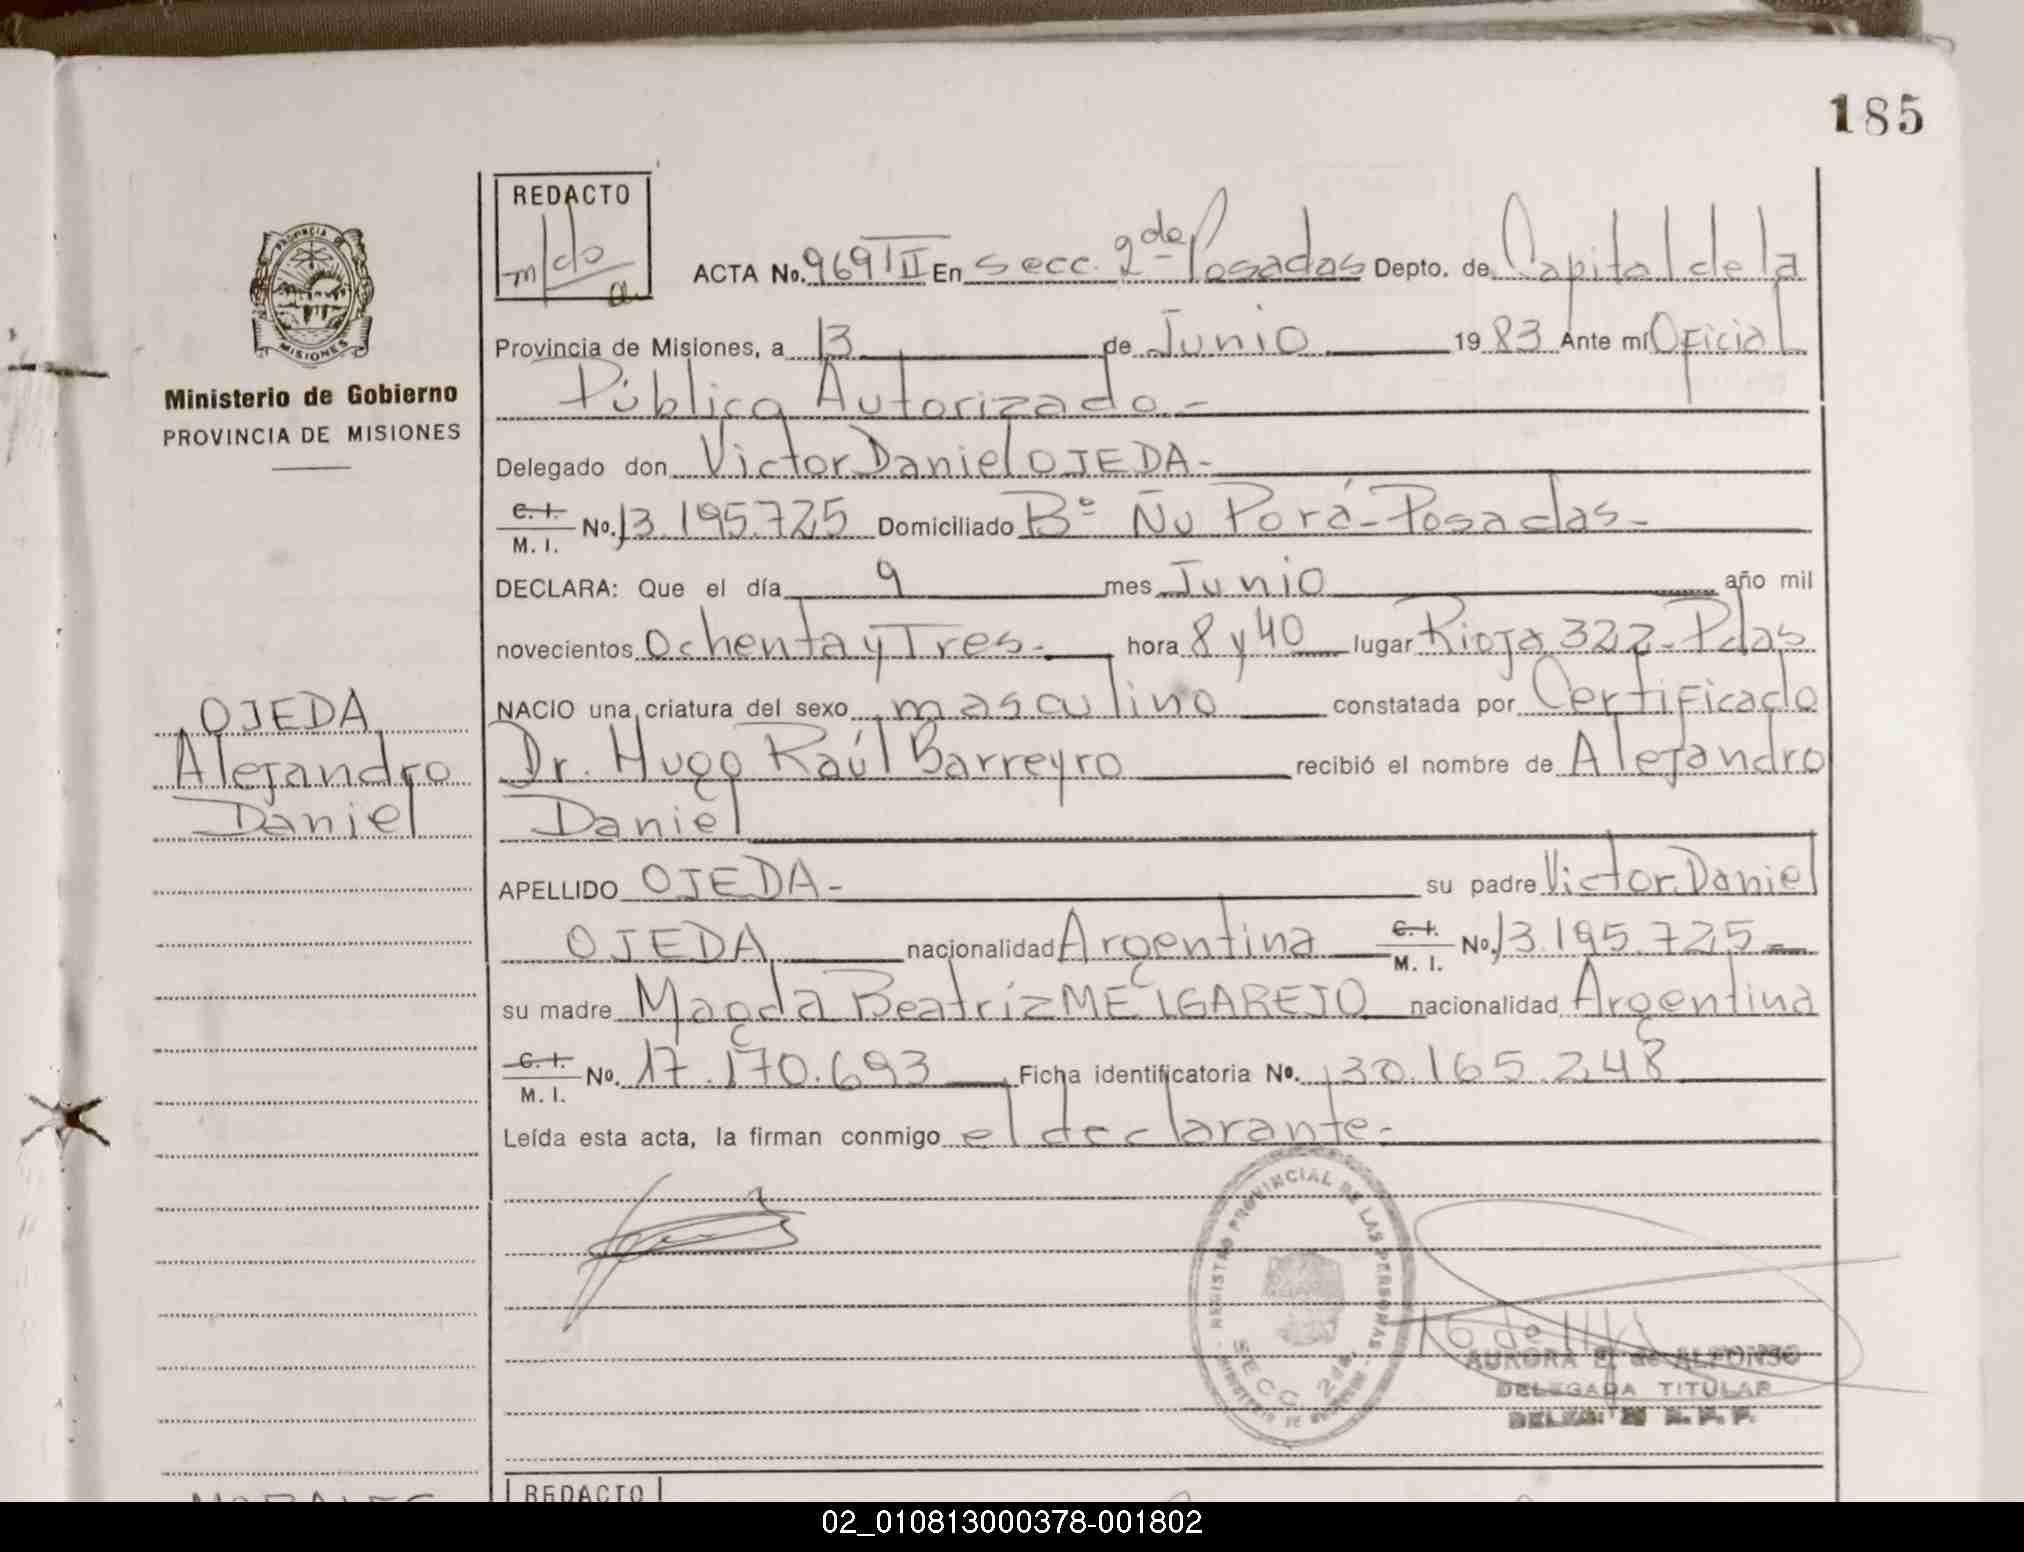 185
REDACTO
PROVINCIA DE
MISIONES
Ministerio de Gobierno
PROVINCIA DE MISIONES
OJEDA
Alejandro
Daniel
ACTA No. 969 TII En secc. 2da Posadas Depto. de Capital de la
Provincia de Misiones, a 13 de Junio 1983 Ante mí Oficial
Público Autorizado.-
Delegado don Victor Daniel OJEDA-
C. I. / M. I. No. 13.195.725 Domiciliado Bº Ñu Porá-Posadas-
DECLARA: Que el día 9 mes Junio año mil
novecientos Ochenta y Tres- hora 8 y 40 lugar Rioja 322-Pdas
NACIO una criatura del sexo masculino constatada por Certificado
Dr. Hugo Raúl Barreyro recibió el nombre de Alejandro
Daniel
APELLIDO OJEDA- su padre Victor Daniel
OJEDA nacionalidad Argentina C. I. / M. I. No. 13.195.725-
su madre Magda Beatríz MELGAREJO nacionalidad Argentina
C. I. / M. I. No. 17.170.693 Ficha identificatoria No. 30.165.248
Leída esta acta, la firman conmigo el declarante-
REGISTRO PROVINCIAL DE LAS PERSONAS
SECC 2da.
AURORA E. de ALFONSO
DELEGADA TITULAR
REDACTO
02_010813000378-001802